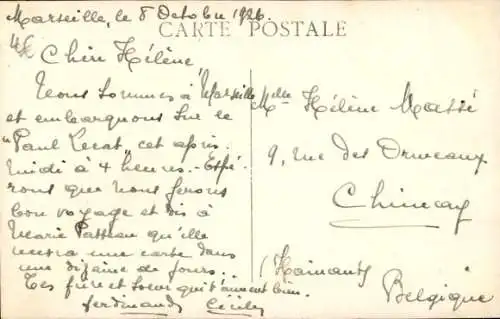 Marseille, le 8 Octobre 1926.
CARTE POSTALE
Chère Hélène,
Nous sommes à Marseille
et embarquons sur le
"Paul Lecat" cet après-
midi à 4 heures. - Espé-
rons que nous ferons
bon voyage et dis à
Marie qu'elle
recevra une carte dans
une dizaine de jours..
Tes frère et soeur qui t'aiment bien.
Ferdinand Cécile
Melle Hélène Massé
9, Rue des Ormeaux
Chimay
(Hainaut)
Belgique